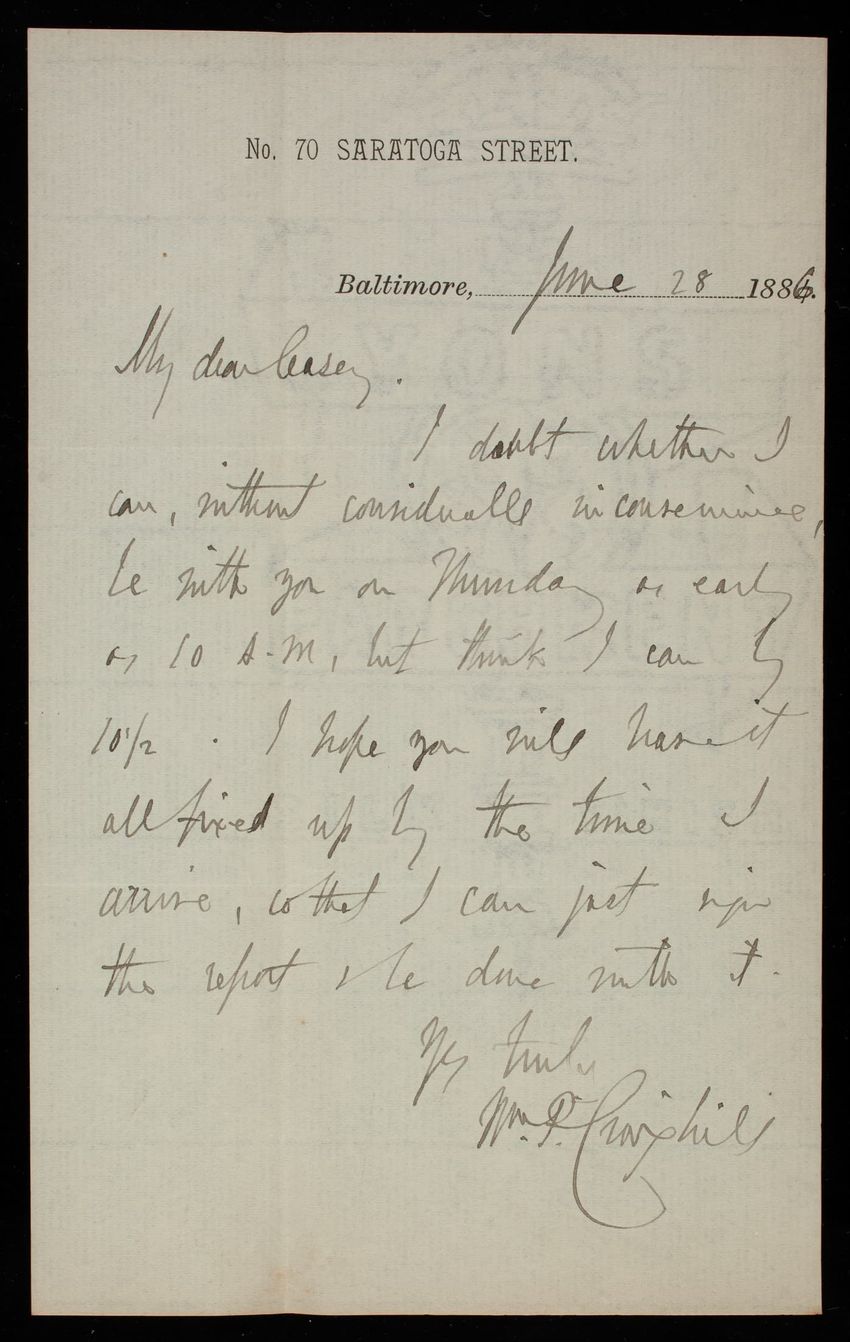 No. 70 SARATOGA STREET.
Baltimore, June 28 1886.
My dear Casey.
I doubt whether I
can, without considerable inconvenience,
be with you on Thursday as early
as 10 A.M, but think I can by
10 1/2. I hope you will have it
all fixed up by the time I
arrive, so that I can just sign
the report & be done with it.
Yrs truly
Wm. P. Craighill